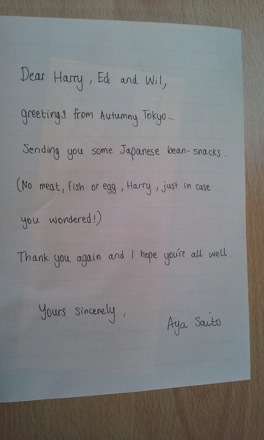 Dear Harry, Ed and Wil,
greetings from Autumny Tokyo...
Sending you some Japanese bean-snacks.
(No meat, fish or egg, Harry, just in case
you wondered!)
Thank you again and I hope you're all well.
Yours sincerely,
Aya Saito